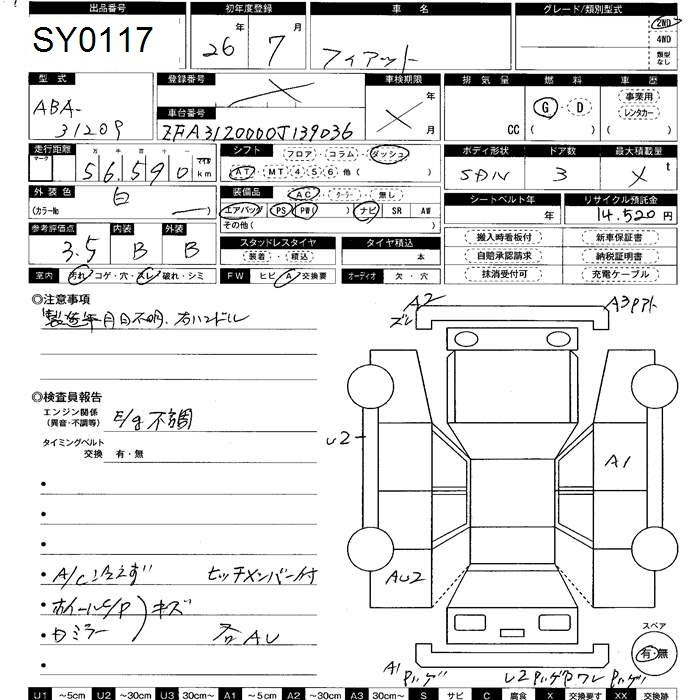 出品番号 初年度登録 車名 グレード/類別型式
SY0117 26年 7月 フィアット 2WD
4WD
類型なし
型式 登録番号 車検期限 排気量 燃料 車歴
ABA- 年 G・D 事業用
31209 車台番号 月 CC ( ) レンタカー
ZFA3120000J139036 ( )
走行距離 マーク 万 千 百 十 一 シフト フロア・コラム・ダッシュ ボディ形状 ドア数 最大積載量
56590 マイル km AT・MT 4 5 6 他( ) 3 X t
外装色 白 装備品 AC・クーラー・無し シートベルト年 リサイクル預託金
(カラーNo ) エアバッグ PS PW( ) ナビ SR AW 年 14,520円
参考評価点 内装 外装 その他( )
3.5 B B スタッドレスタイヤ タイヤ積込 搬入時看板付 新車保証書
装着・積込 本 自賠承認請求 納税証明書
室内 汚れ・コゲ・穴・スレ・破れ・シミ FW ヒビ・A・交換要 オーディオ 欠・穴 抹消受付可 充電ケーブル
◎注意事項 A2 A3アト
製造年月日不明、右ハンドル ズレ
◎検査員報告
エンジン関係 E/g不調
(異音・不調等)
U2 A1
タイミングベルト
交換 有・無
・A/C冷えず ヒッチメンバー付 AU2
・ホイールC/P キズ
・Dミラー 右AU スペア
有・無
A1
U1 ~5cm U2 ~30cm U3 30cm~ A1 ~5cm A2 ~30cm A3 30cm~ S サビ C 腐食 X 交換要す XX 交換跡